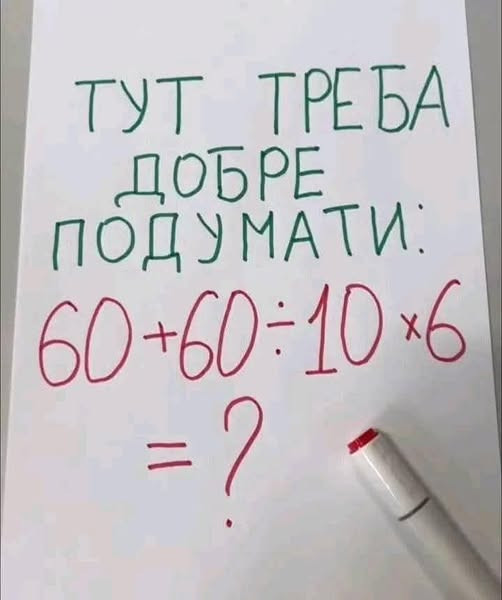 ТУТ ТРЕБА
ДОБРЕ
ПОДУМАТИ:
60+60÷10×6
=?